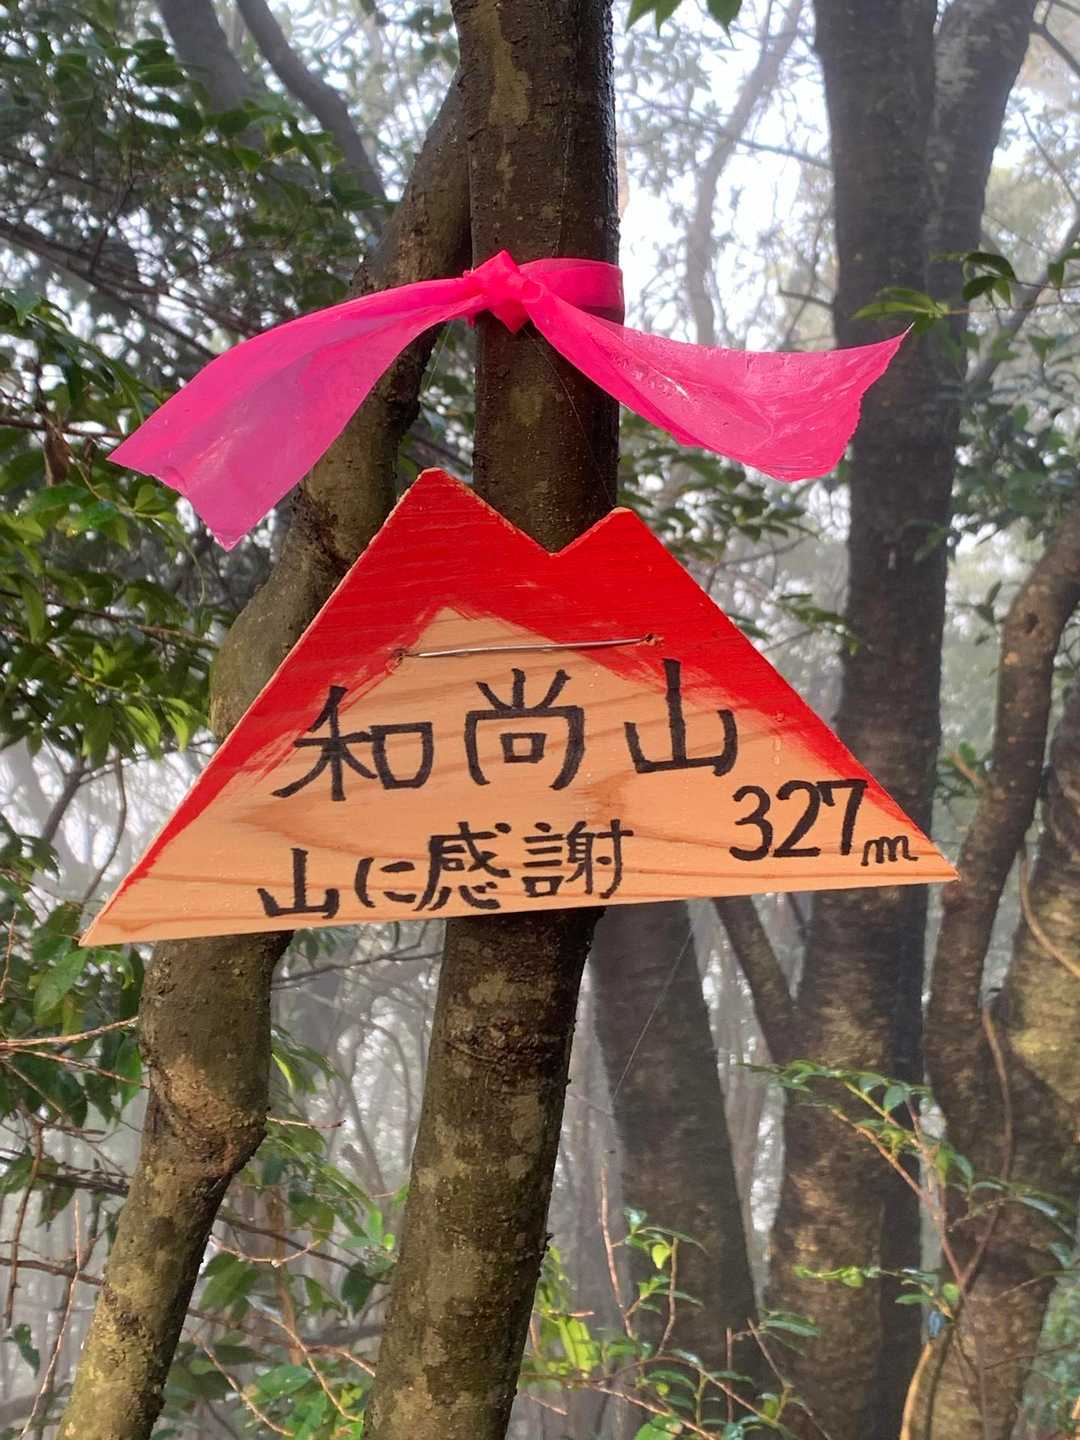 和尚山
327m
山に感謝